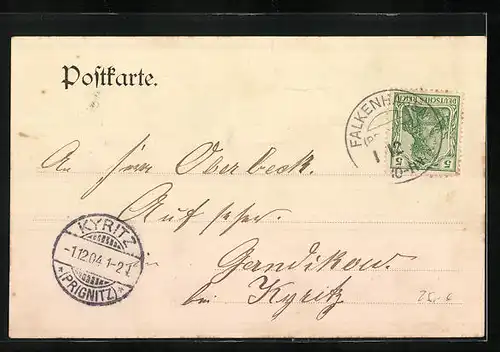 Postkarte.
FALKENH
1 12
DEUTSCHES REICH
5 5
An Herrn Oberbeck.
Aufseher.
KYRITZ
-1.12.04. 1-2 N
*(PRIGNITZ)*
in Gandikow.
bei Kyritz